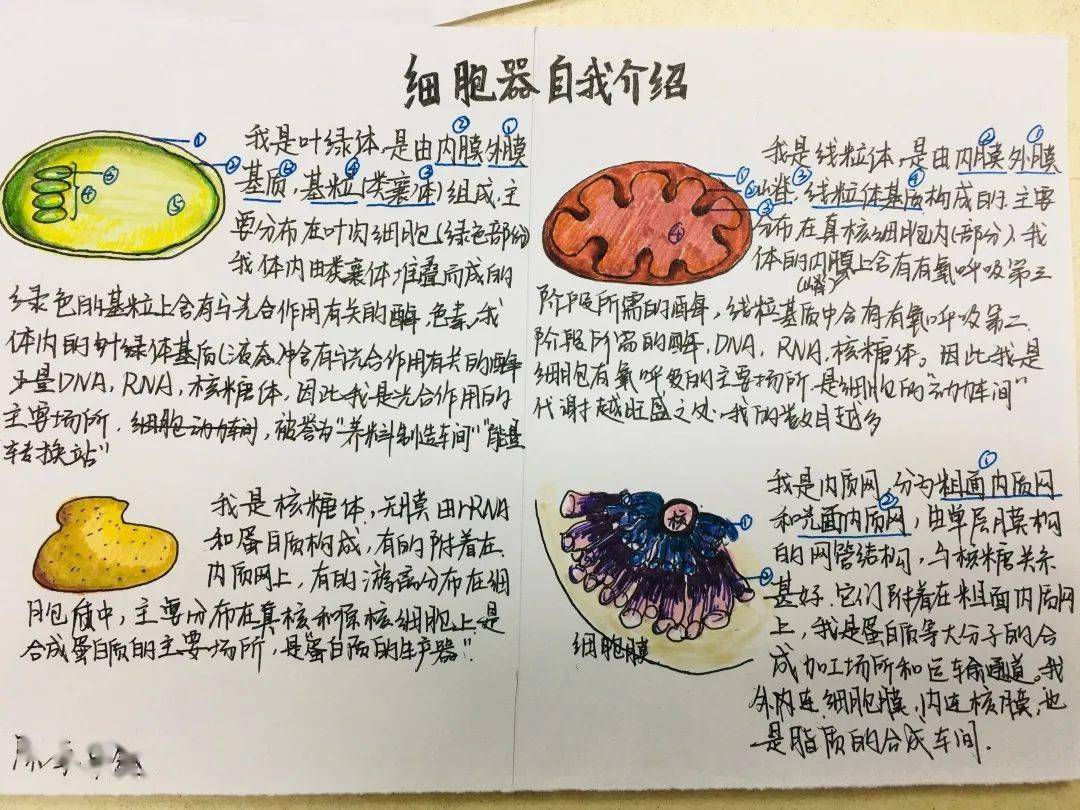 细胞器自我介绍
我是叶绿体,是由内膜外膜
基质,基粒(类囊体)组成,主
要分布在叶肉细胞(绿色部份)
我体内由类囊体堆叠而成的
绿色的基粒上含有与光合作用有关的酶,色素。我
体内的叶绿体基质(液态)中含有与光合作用有关的酶
少量DNA,RNA,核糖体,因此我是光合作用的
主要场所,细胞动力车间,被誉为"养料制造车间""能量
转换站"
我是核糖体,无膜由rRNA
和蛋白质构成,有的附着在
内质网上,有的游离分布在细
胞质中,主要分布在真核和原核细胞上是
合成蛋白质的主要场所,是蛋白质的生产器".
我是线粒体,是由内膜外膜
嵴,线粒体基质构成的.主要
分布在真核细胞内(部分),我
体的内膜上含有有氧呼吸第三
(嵴)
阶段所需的酶,线粒基质中含有有氧呼吸第二
阶段所需的酶,DNA,RNA,核糖体。因此我是
细胞有氧呼吸的主要场所.是细胞的"动力车间"
代谢越旺盛之处,我的数目越多
我是内质网,分为粗面内质网
和光面内质网,由单层膜构
的网管结构,与核糖关系
甚好.它们附着在粗面内质网
上,我是蛋白质等大分子的合
成加工场所和运输通道。我
外内连细胞膜,内连核膜,也
是脂质的合成车间.
核
细胞膜
① ② ③ ④ ⑤
① ② ③ ④
① ②